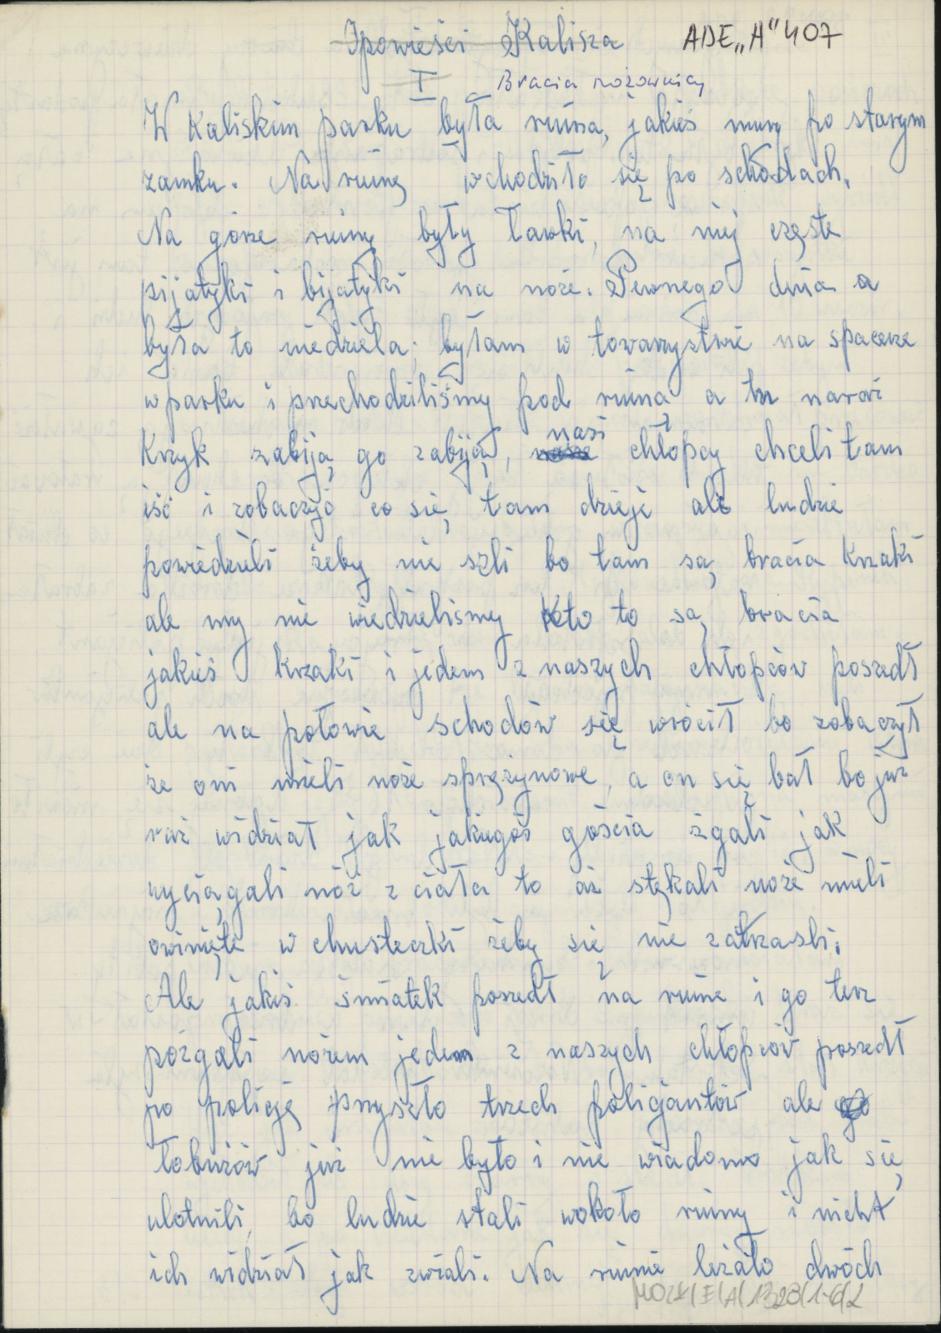 Opowieści Kalisza ADE„A" 407
I Bracia nożownicy
W Kaliskim parku była ruina, jakieś mury po starym
zamku. Na ruinę wchodziło się po schodach.
Na górze ruiny były ławki, na niej częste
pijatyki i bijatyki na noże. Pewnego dnia a
była to niedziela byłam w towarzystwie na spacerze
w parku i przechodziliśmy pod ruiną a tu naraz
krzyk zabiją go zabiją, nasi chłopcy chcieli tam
iść i zobaczyć co się tam dzieje ale ludzie
powiedzieli żeby nie szli bo tam są bracia Krzaki
ale my nie wiedzieliśmy kto to są bracia
jakieś Krzaki i jeden z naszych chłopców poszedł
ale na połowie schodów się wrócił bo zobaczył
że oni mieli noże sprężynowe, a on się bał bo już
raz widział jak jakiegoś gościa żgali jak
wyciągali nóż z ciała to aż stękali noże mieli
owinięte w chusteczki żeby się nie zatrzasli.
Ale jakiś śmiałek poszedł na ruine i go też
pożgali nożem jeden z naszych chłopców poszedł
po policję przyszło trzech policjantów ale
łobuzów już nie było i nie wiadomo jak się
ulotnili, bo ludzie stali wokoło ruiny i nicht
ich widział jak zwiali. Na ruinie leżało dwóch